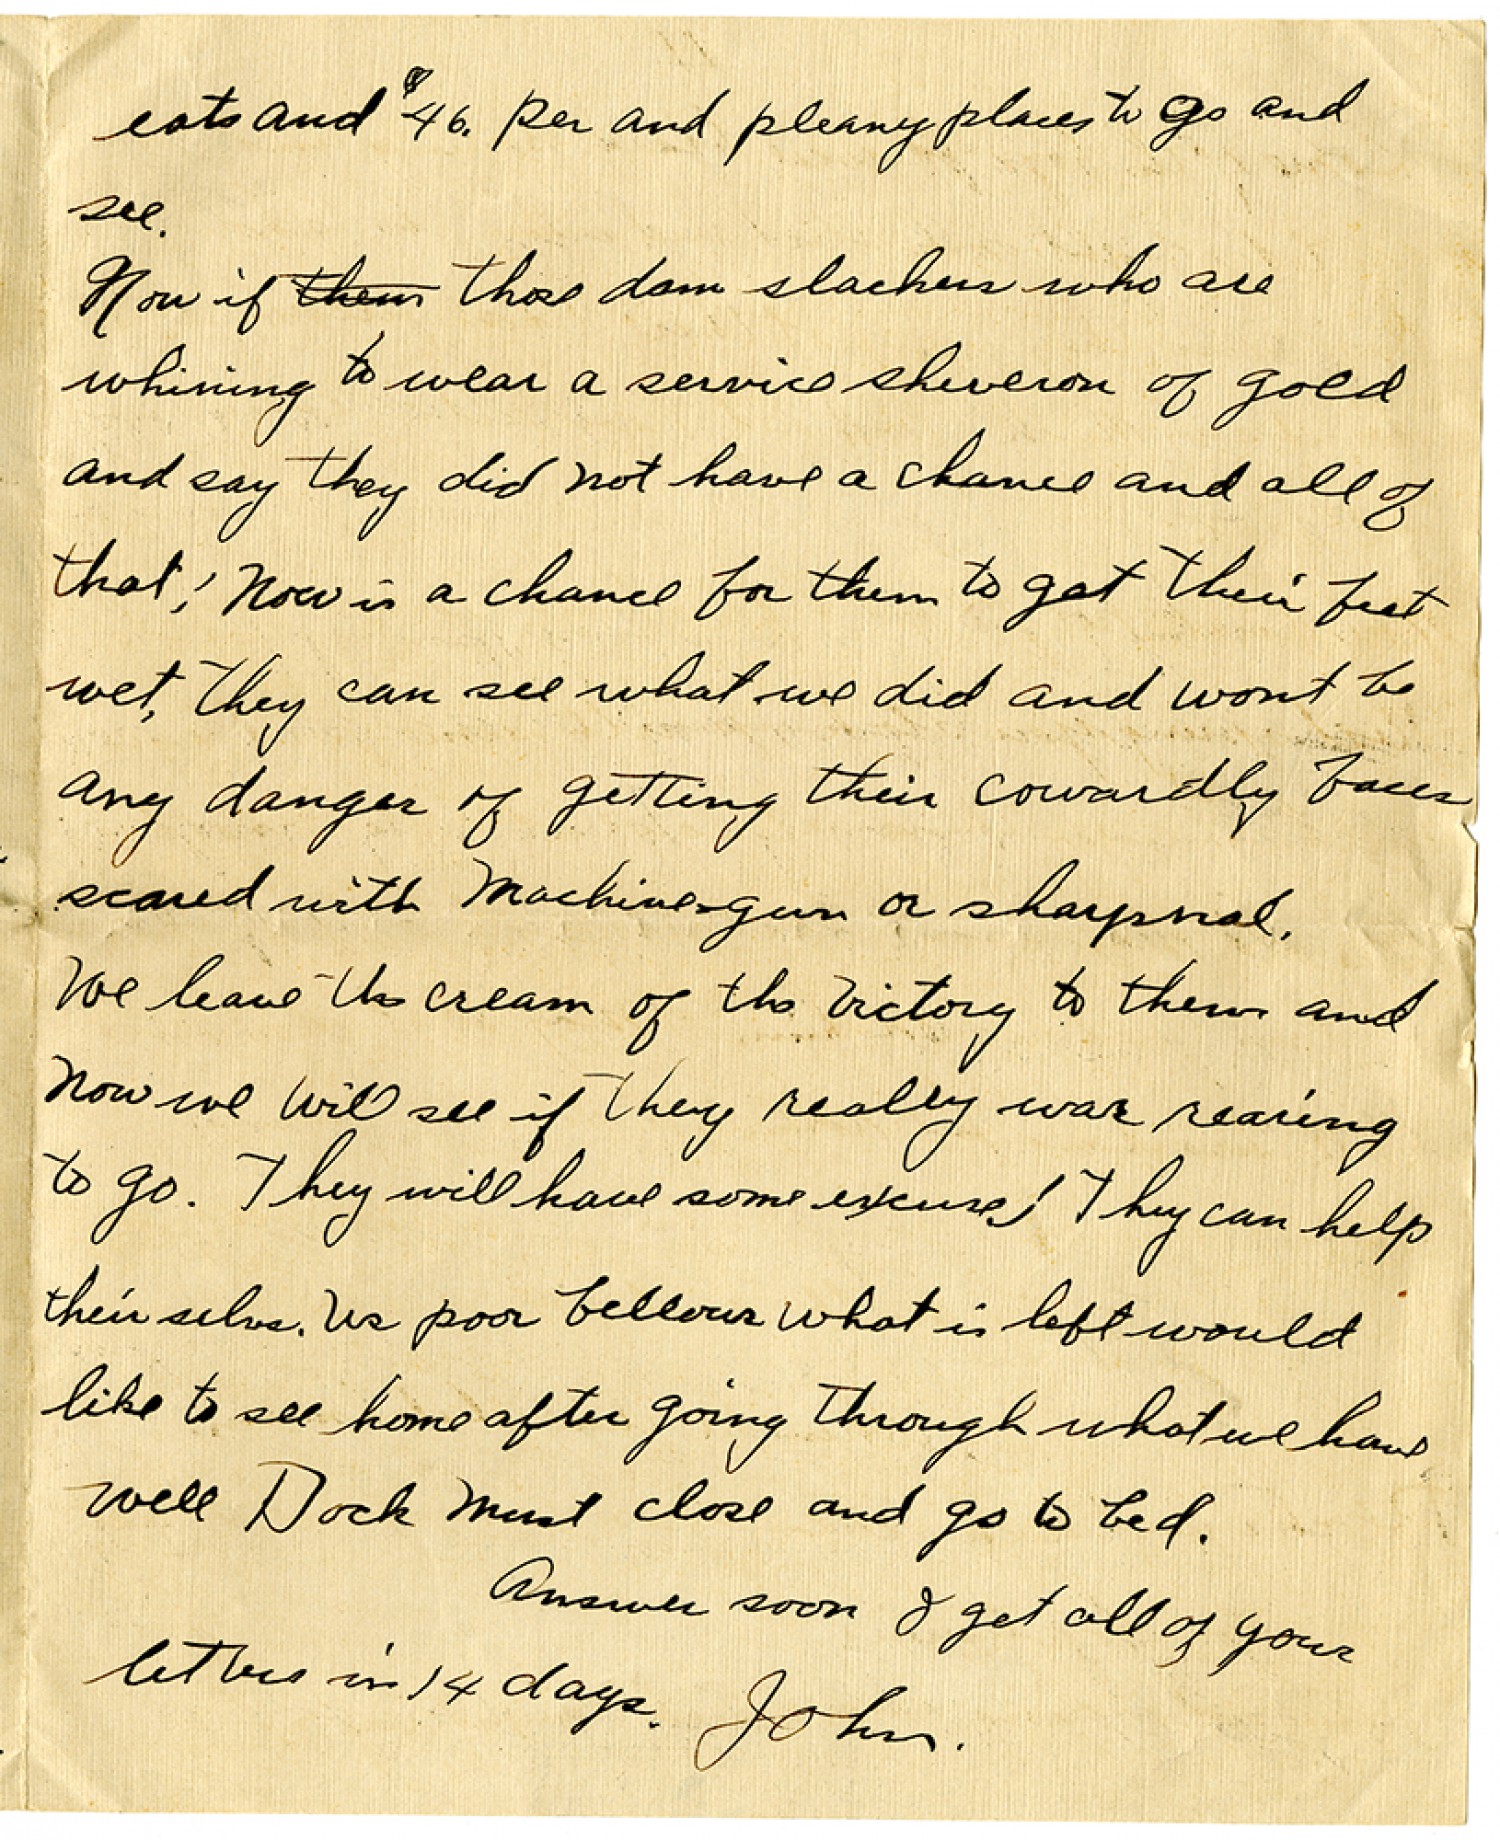 eats and $46. per and pleany places to go and
see.
Now if them those dam slackers who are
whining to wear a service sheveron of gold
and say they did not have a chance and all of
that! Now is a chance for them to get their feet
wet, they can see what we did and wont be
any danger of getting their cowardly faces
scared with machine-gun or sharpnal.
We leave the cream of the victory to them and
now we will see if they really war rearing
to go. They will have some excuse! They can help
their selvs. Us poor fellows what is left would
like to see home after going through what we have
well Dock must close and go to bed.
Answer soon I get all of your
letters in 14 days. John.